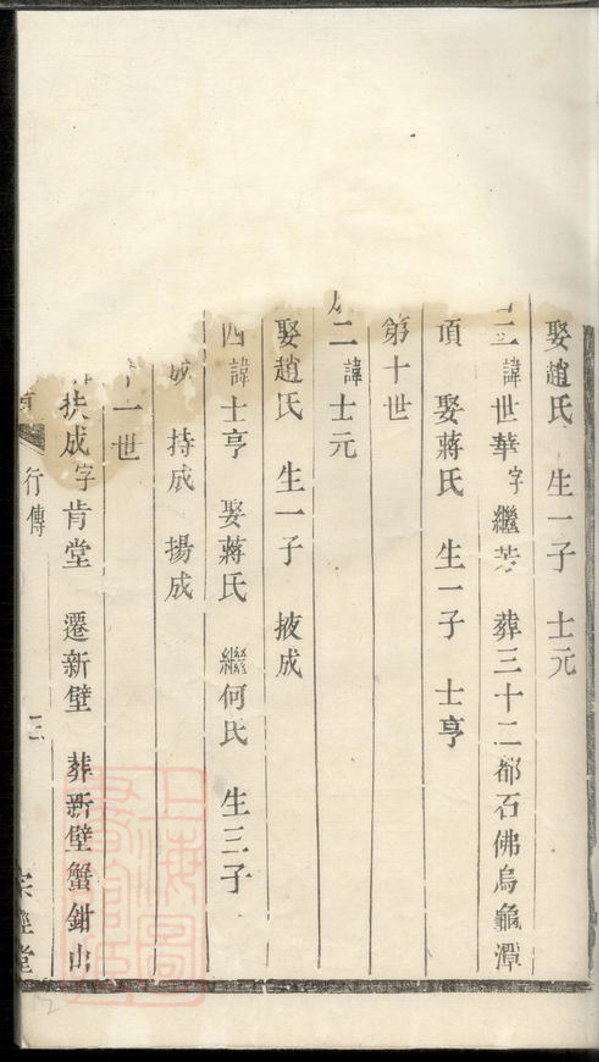 娶趙氏 生一子 士元
三諱世華字繼芳 葬三十二都石佛烏龜潭
項 娶蔣氏 生一子 士亨
第十世
二諱士元
娶趙氏 生一子 掖成
四諱士亨 娶蔣氏 繼何氏 生三子
成 持成 揚成
一世
扶成字肯堂 遷新壁 葬新壁蟹鉗山
行傳 三
上海圖書館藏